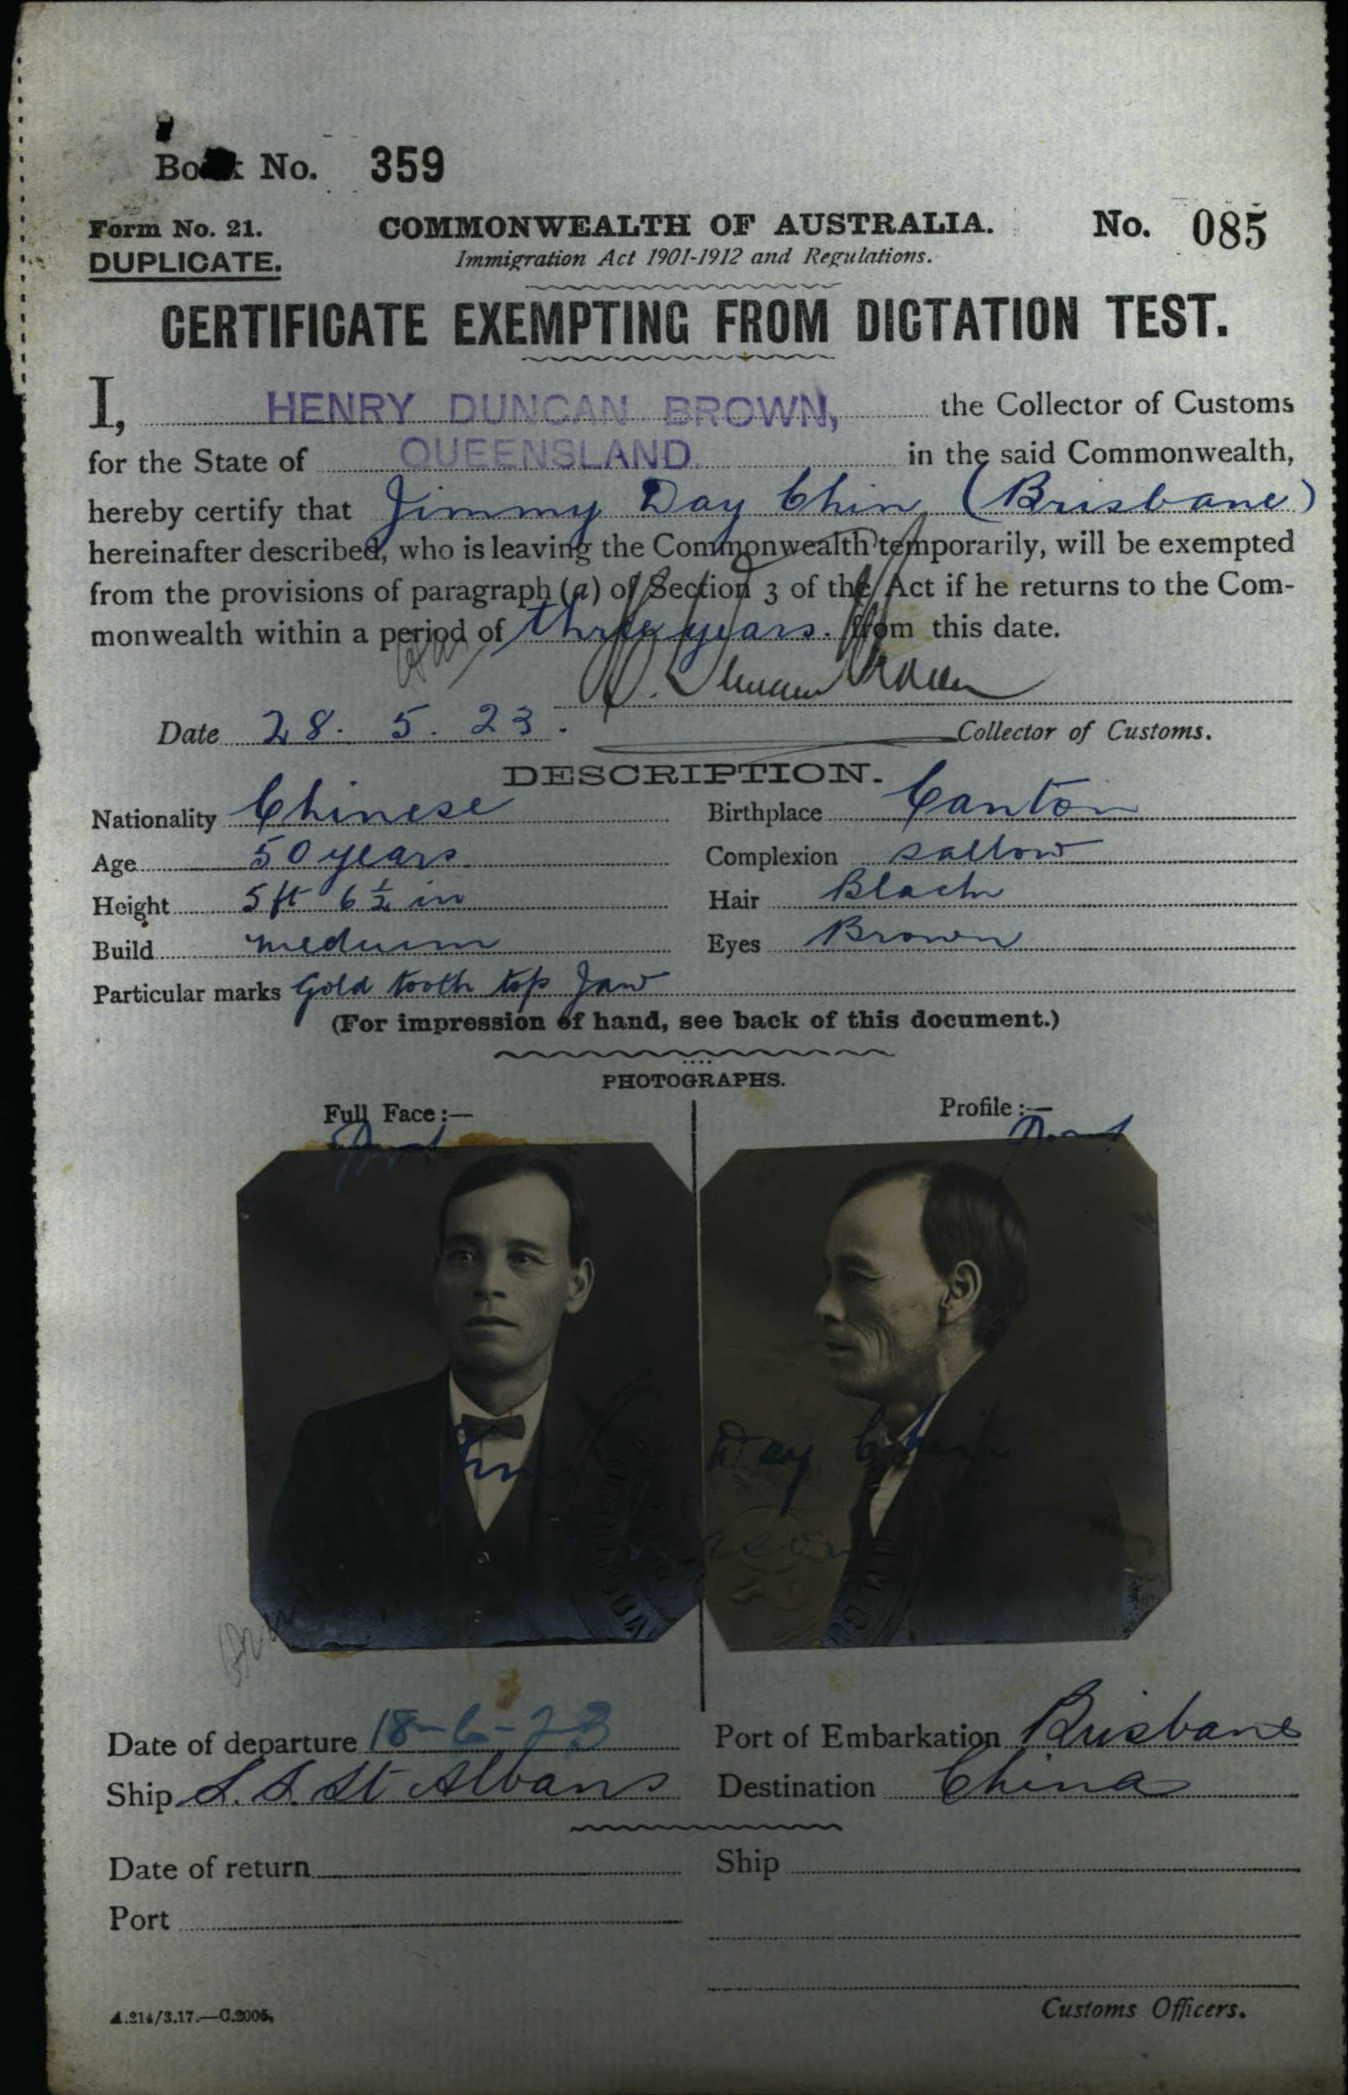 Book No. 359
Form No. 21. COMMONWEALTH OF AUSTRALIA. No. 085
DUPLICATE. Immigration Act 1901-1912 and Regulations.
CERTIFICATE EXEMPTING FROM DICTATION TEST.
I, HENRY DUNCAN BROWN, the Collector of Customs
for the State of QUEENSLAND in the said Commonwealth,
hereby certify that Jimmy Day Chin (Brisbane)
hereinafter described, who is leaving the Commonwealth temporarily, will be exempted
from the provisions of paragraph (a) of Section 3 of the Act if he returns to the Com-
monwealth within a period of three years. from this date.
H. Duncan Brown
Date 28. 5. 23. Collector of Customs.
DESCRIPTION.
Nationality Chinese Birthplace Canton
Age 50 years Complexion sallow
Height 5 ft 6 ½ in Hair Black
Build medium Eyes Brown
Particular marks Gold tooth top Jaw
(For impression of hand, see back of this document.)
PHOTOGRAPHS.
Full Face:— Profile:—
Day Chin
Date of departure 18-6-23 Port of Embarkation Brisbane
Ship S.S. St Albans Destination China
Date of return Ship
Port
A.214/3.17.—C.2005. Customs Officers.